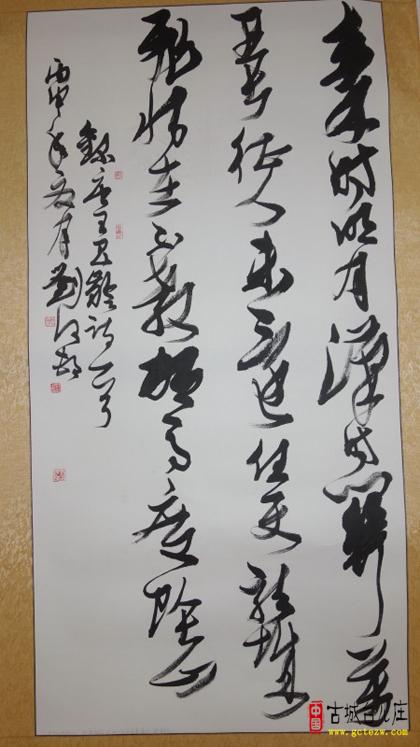 秦时明月漢时關萬
里长征人未还但使龍城
飛将在不教胡马度陰山
錄唐王昌齡诗一首
丙申年夏月劉
中国
古城台儿庄
www.gctezw.com